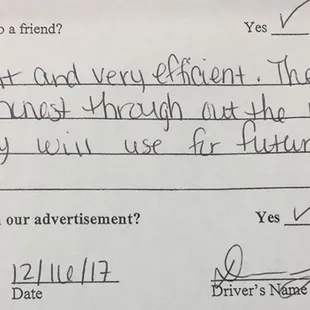 o a friend? Yes ✓
t and very efficient. The
onest through out the
y will use for futur
our advertisement? Yes ✓
12/16/17
Date Driver's Name